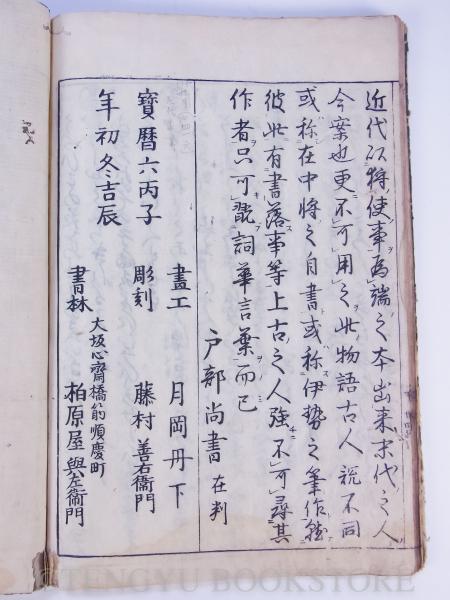 近代以狩使事為端之本出来末代之人
今案也更不可用之此物語古人説不同
或称在中将之自書或称伊勢之筆作就
彼此有書落事等上古之人強不可尋其
作者只可翫詞華言葉而已
戸部尚書 在判
畫工 月岡丹下
寶暦六丙子 彫刻 藤村善右衞門
年初冬吉辰
大坂心齋橋筋順慶町
書林 柏原屋與左衞門
TENGYU BOOKSTORE